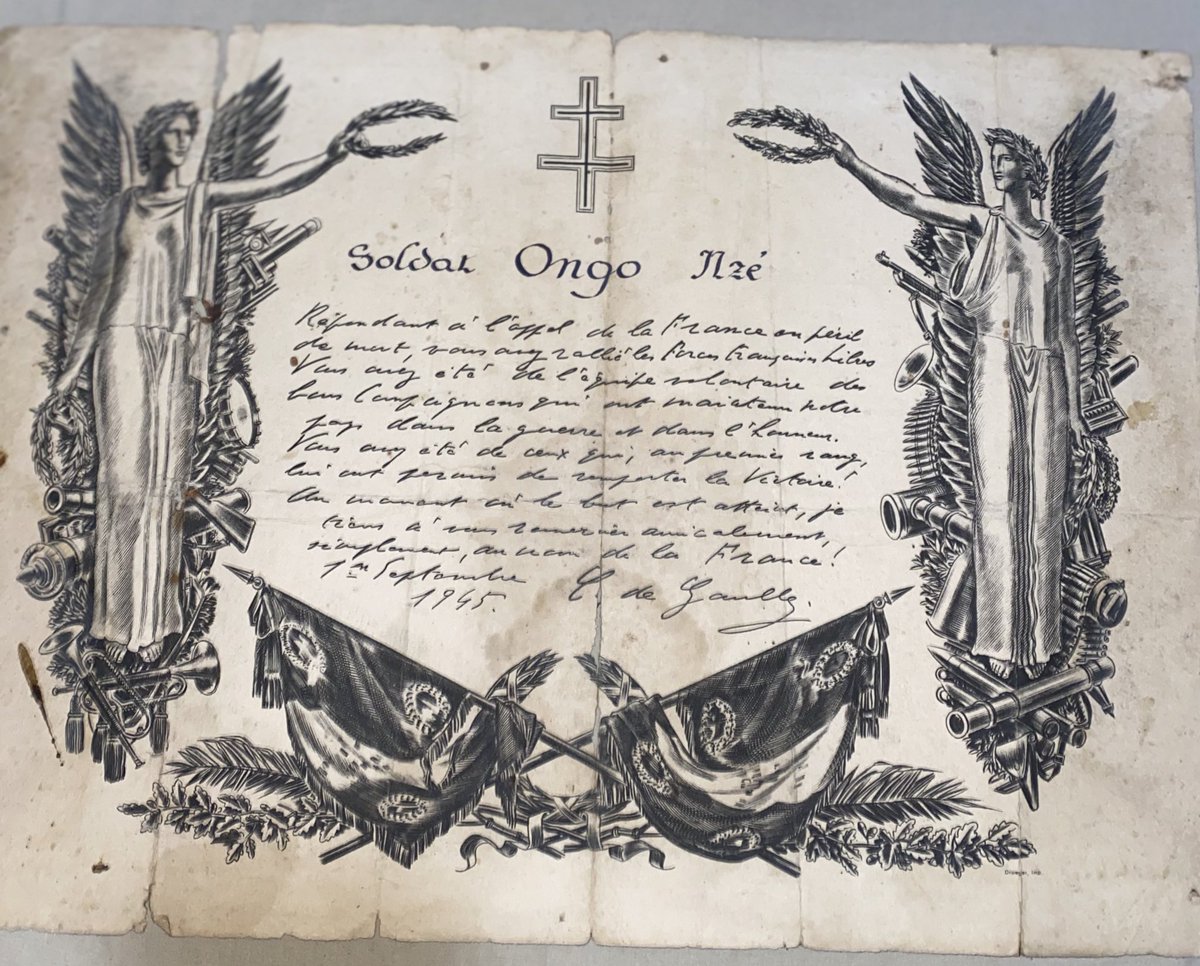 Soldat Ongo Nzé
Répondant à l'appel de la France en péril
de mort, vous avez rallié les Forces françaises libres
Vous avez été de l'équipe volontaire des
bons compagnons qui ont maintenu notre
pays dans la guerre et dans l'honneur.
Vous avez été de ceux qui, au premier rang,
lui ont permis de remporter la Victoire!
Au moment où le but est atteint, je
tiens à vous remercier amicalement,
simplement, au nom de la France!
1er Septembre
1945. C. de Gaulle.